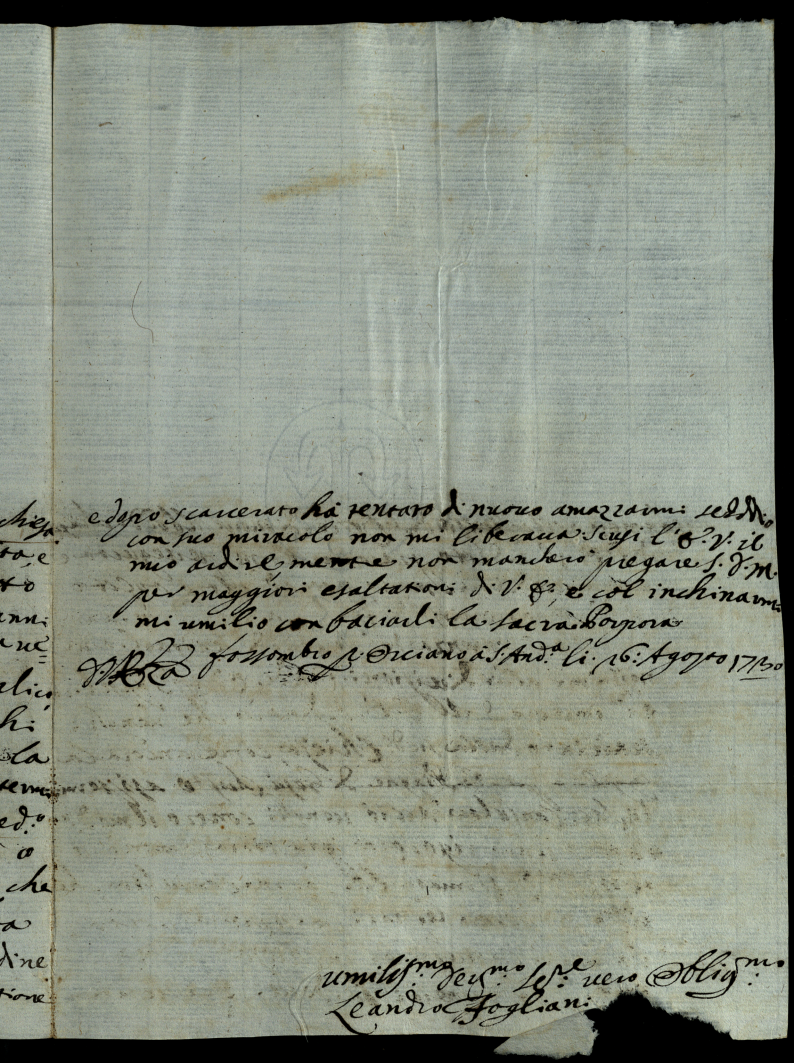 chiesa
ta, e
to
anni
a ve=
alico
hi
la
ed.o
che
ta
dine
tione
e dopo scarcerato há tentato di nuovo amazzarmi se Ddio
con suo miracolo non mi liberava scusi l'E. V. il
mio ardire mentre non mancherò pregare S. D. M.
per maggiori esaltationi di V. E., e col inchinarmi
mi umilio con baciarli la sacra Porpora
Fossombro p. Orciano à S. And.a li 26: Agosto 1730
umiliss.mo dev.mo se.re vero Oblig.mo
Leandro Fogliani